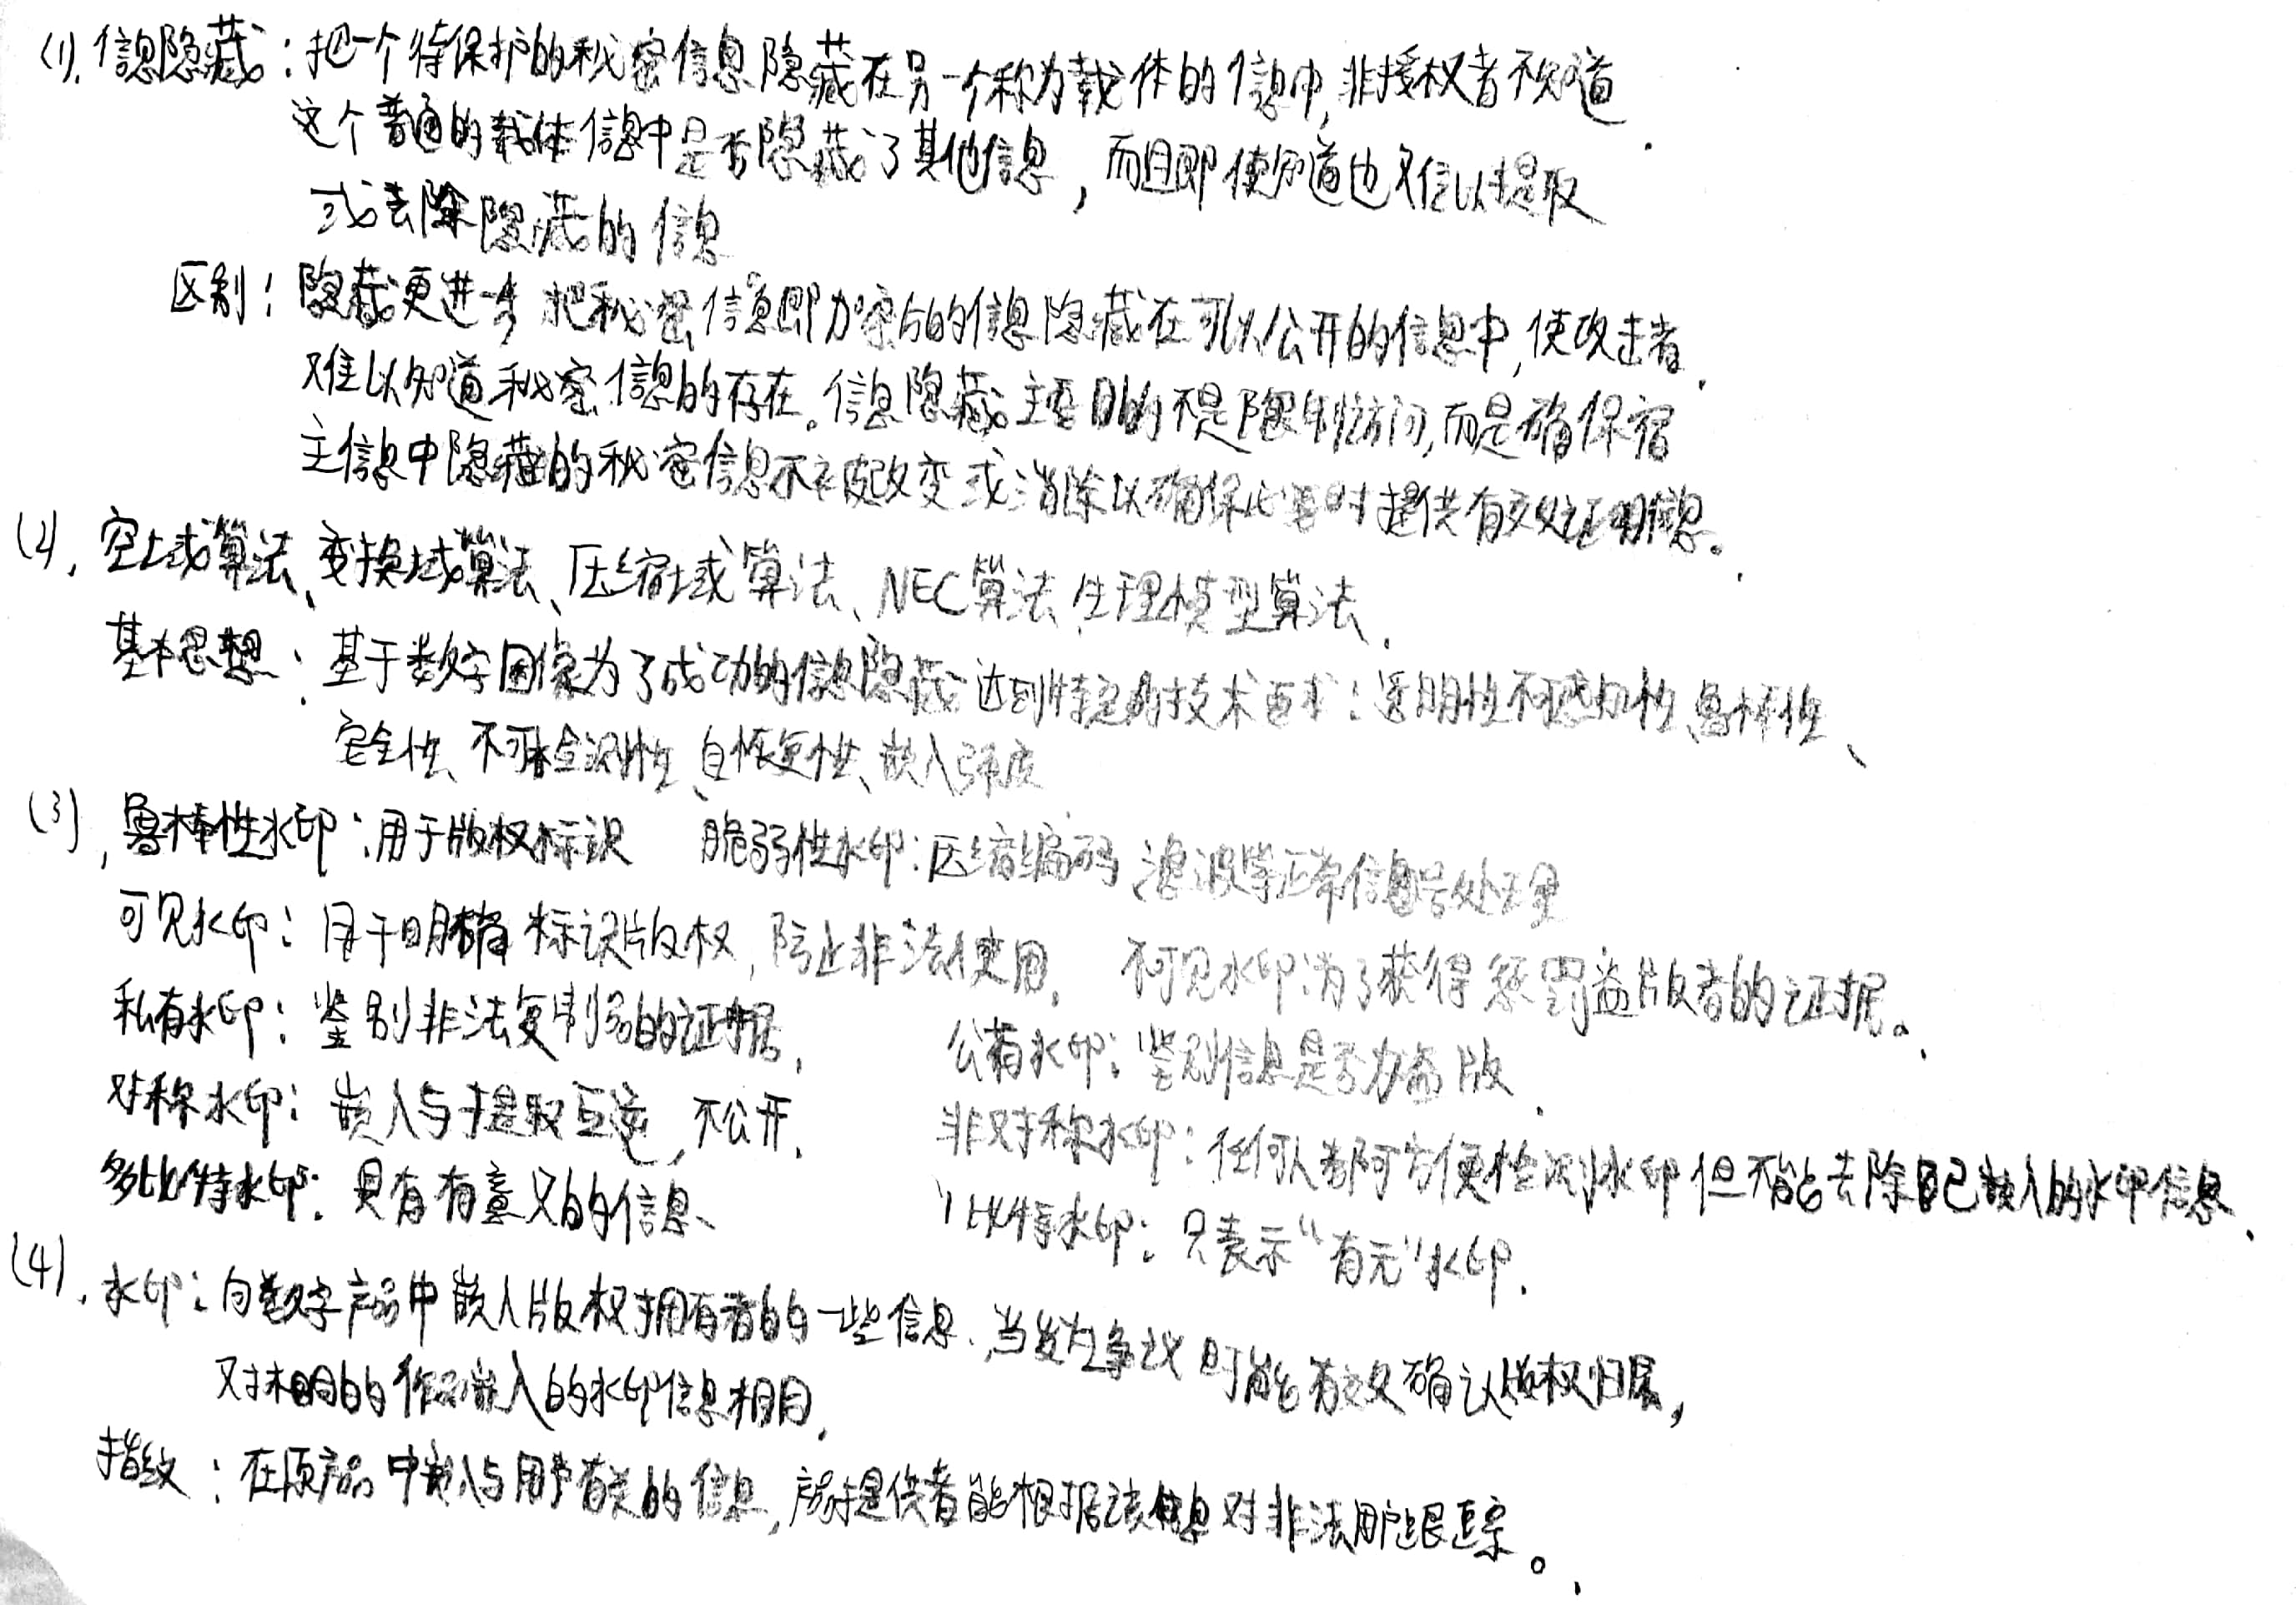 (1). 信息隐藏：把一个待保护的秘密信息隐藏在另一个称为载体的信息中, 非授权者不知道
这个普通的载体信息中是否隐藏了其他信息，而且即使知道也难以提取
或去除隐藏的信息
区别：隐藏更进一步 把秘密信息即加密后的信息隐藏在可以公开的信息中, 使攻击者
难以知道秘密信息的存在。信息隐藏主要目的不是限制访问, 而是确保宿
主信息中隐藏的秘密信息不被改变或消除以确保必要时提供有效证明信息。
(2). 空域算法、变换域算法、压缩域算法、NEC算法、生理模型算法.
基本思想：基于数字图像为了成功的信息隐藏达到特定的技术要求：透明性不可感知性、鲁棒性、
安全性、不可检测性、自恢复性、嵌入强度
(3). 鲁棒性水印：用于版权标识 脆弱性水印：压缩编码 滤波等正常信号处理
可见水印：用于明确标识版权, 防止非法使用. 不可见水印:为了获得惩罚盗版者的证据。
私有水印：鉴别非法复制的证据, 公有水印：鉴别信息是否为盗版
对称水印：嵌入与提取互逆, 不公开. 非对称水印：任何人都可方便检测水印但不能去除自己嵌入的水印信息.
多比特水印：具有有意义的信息、 1比特水印：只表示"有无"水印.
(4). 水印：向数字产品中嵌入版权拥有者的一些信息, 当发生争议时能有效确认版权归属,
对相同的作品嵌入的水印信息相同.
指纹：在原产品中嵌入与用户有关的信息, 产品提供者能根据该信息对非法用户跟踪。